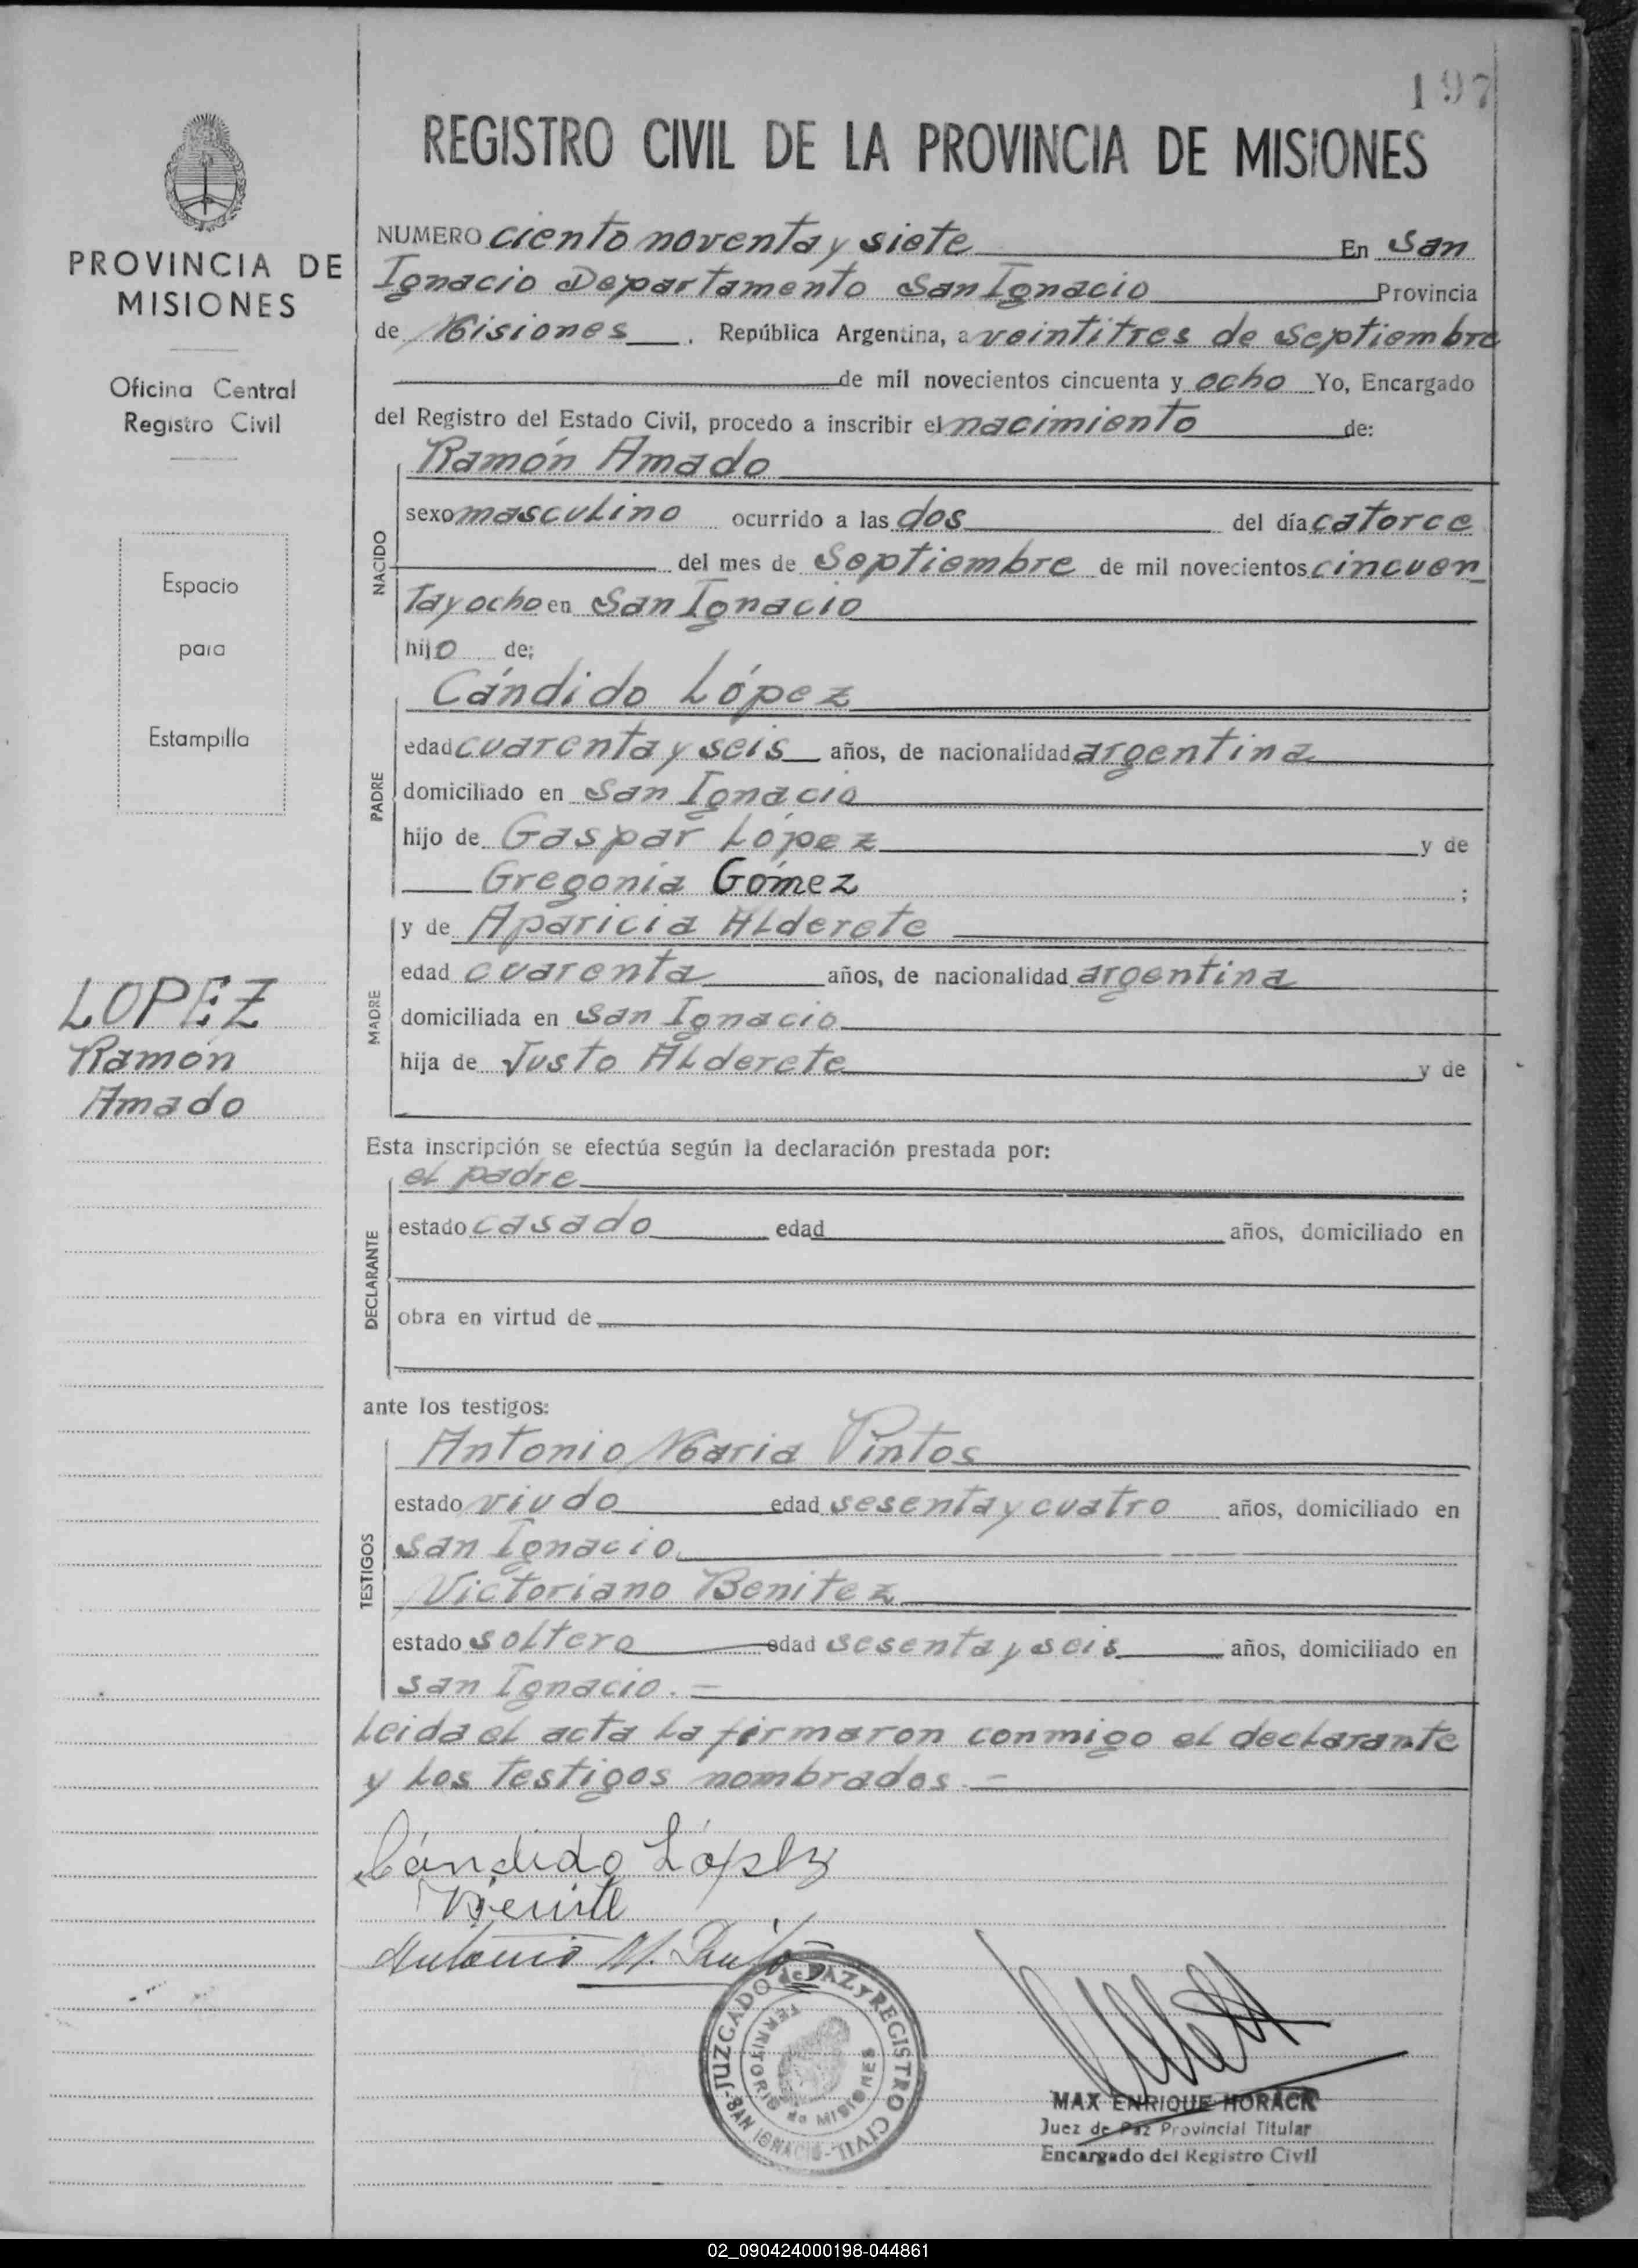 197
REGISTRO CIVIL DE LA PROVINCIA DE MISIONES
PROVINCIA DE
MISIONES
Oficina Central
Registro Civil
Espacio
para
Estampilla
LOPEZ
Ramón
Amado
NUMERO ciento noventa y siete En San
Ignacio Departamento San Ignacio Provincia
de Misiones. República Argentina, a veintitres de Septiembre
de mil novecientos cincuenta y ocho Yo, Encargado
del Registro del Estado Civil, procedo a inscribir el nacimiento de:
NACIDO
Ramón Amado
sexo masculino ocurrido a las dos del día catorce
del mes de Septiembre de mil novecientos cincuen
ta y ocho en San Ignacio
hijo de:
PADRE
Cándido López
edad cuarenta y seis años, de nacionalidad argentina
domiciliado en San Ignacio
hijo de Gaspar López y de
Gregonia Gómez ;
MADRE
y de Aparicia Alderete
edad cuarenta años, de nacionalidad argentina
domiciliada en San Ignacio
hija de Justo Alderete y de
Esta inscripción se efectúa según la declaración prestada por:
DECLARANTE
el padre
estado casado edad años, domiciliado en
obra en virtud de
ante los testigos:
TESTIGOS
Antonio Maria Pintos
estado viudo edad sesenta y cuatro años, domiciliado en
San Ignacio
Victoriano Benitez
estado soltero edad sesenta y seis años, domiciliado en
San Ignacio. —
Leida el acta la firmaron conmigo el declarante
y los testigos nombrados. —
Cándido López
Antonio M. Pintos
JUZGADO de PAZ y REGISTRO CIVIL - SAN IGNACIO -
TERRITORIO de MISIONES
MAX ENRIQUE HORACK
Juez de Paz Provincial Titular
Encargado del Registro Civil
02_090424000198-044861